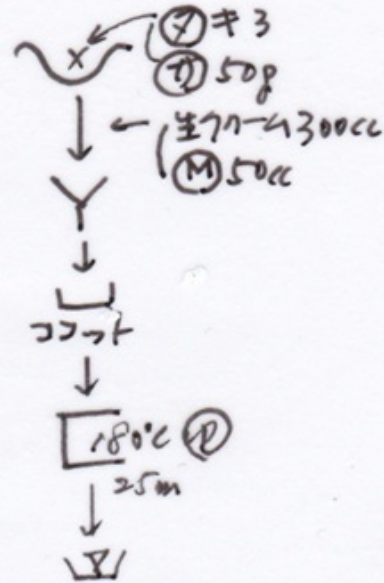 ヌキ3
ガ50g
生クリーム300cc
M50cc
ココット
180℃ P
25m